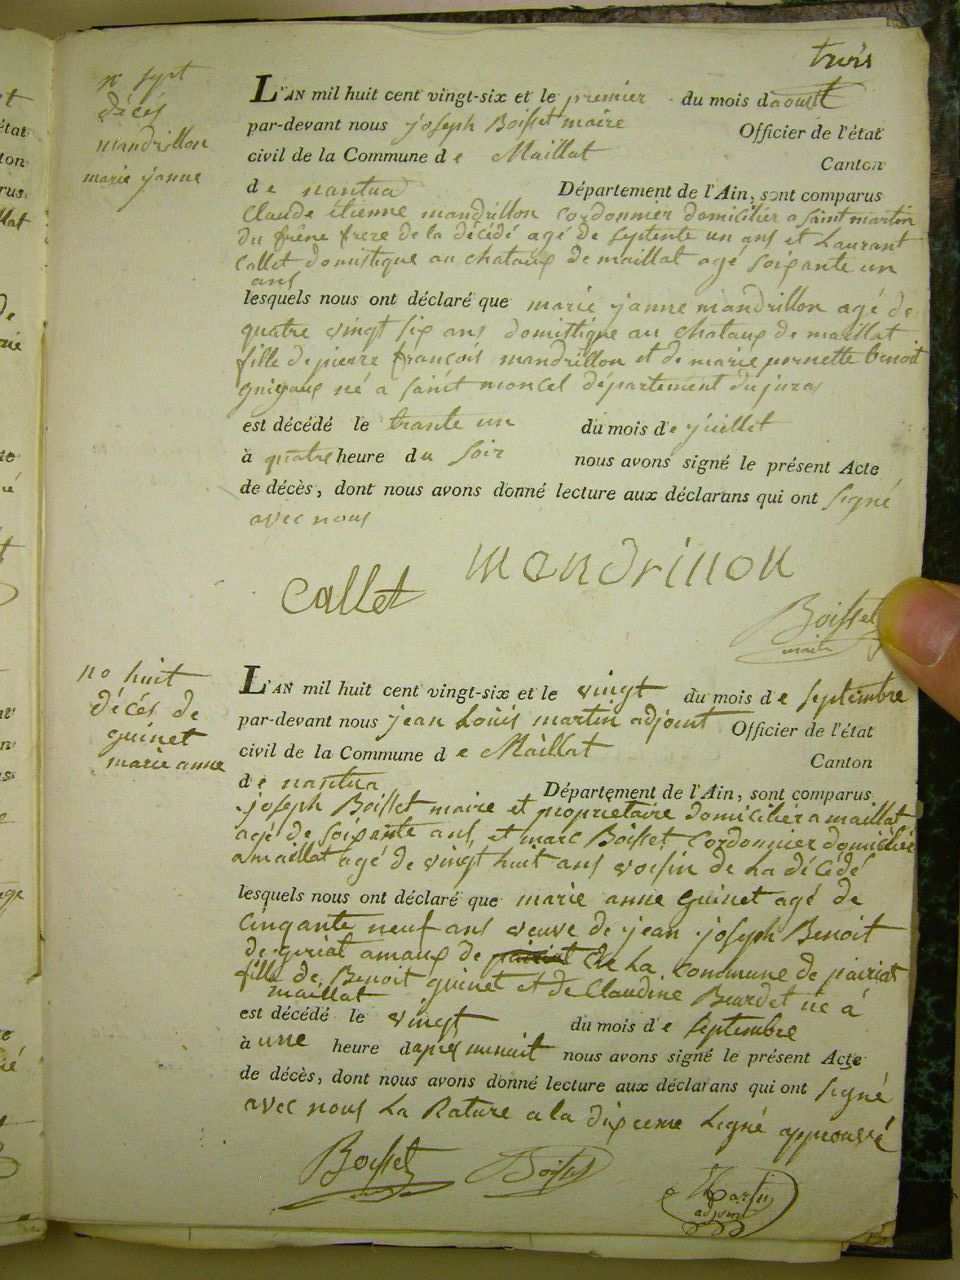 trois
n° sept
décés
mandrillon
marie janne
L'AN mil huit cent vingt-six et le premier du mois daoust
par-devant nous joseph Boisset maire Officier de l'état
civil de la Commune de Maillat Canton
de nantua Département de l'Ain, sont comparus
Claude etienne mandrillon cordonnier domicilier a saint martin
du frêne frere de la décédé agé de septente un ans et Laurant
Callet domistique au chataux de maillat agé soixante un
ans
lesquels nous ont déclaré que marie janne mandrillon agé de
quatre vingt six ans domistique au chataux de maillat
fille de pierre françois mandrillon et de marie pernette benoit
né a saint moncel département du jura
est décédé le trante un du mois de juillet
à quatre heure du soir nous avons signé le présent Acte
de décès, dont nous avons donné lecture aux déclarans qui ont signé
avec nous
Callet mandrillon
Boisset
maire
no huit
décés de
guinet
marie anne
L'AN mil huit cent vingt-six et le vingt du mois de septembre
par-devant nous jean Louis martin adjoint Officier de l'état
civil de la Commune de Maillat Canton
de nantua Département de l'Ain, sont comparus
joseph Boisset maire et propriétaire domicilier a maillat
agé de soixante ans, et marc Boisset Cordonnier domicilié
a maillat agé de vingt huit ans voisin de La décédé
lesquels nous ont déclaré que marie anne guinet agé de
cinqante neuf ans veuve de jean joseph Benoit
de de La commune de pairiat
fille de Benoit guinet et de Claudine Burdet né à
maillat
est décédé le vingt du mois de septembre
à une heure daprés minuit nous avons signé le présent Acte
de décès, dont nous avons donné lecture aux déclarans qui ont signé
avec nous La Rature a la dixieme Ligne approuvé
Boisset Boisset Martin
adjoint